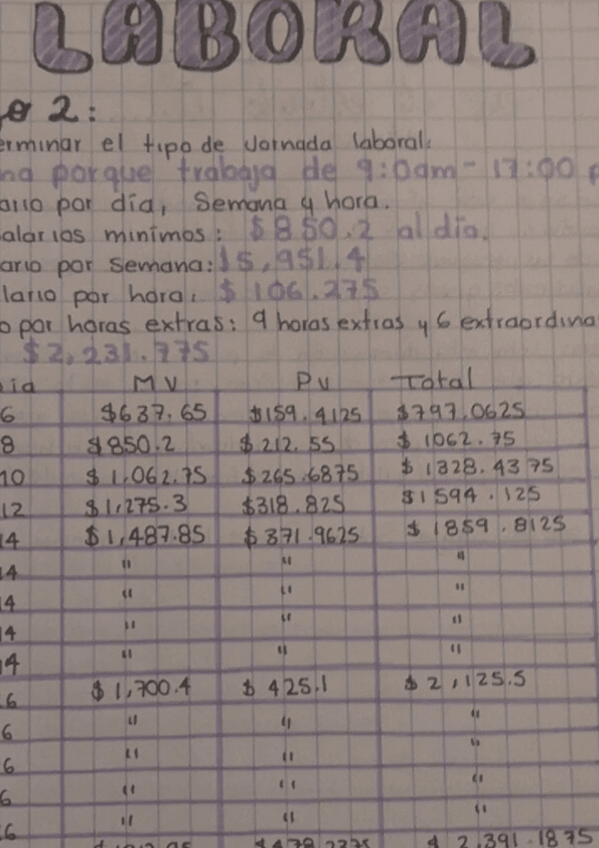 LABORAL
2:
erminar el tipo de Jornada laboral.
na porque trabaja de 9:00am - 17:00 p
ario por día, Semana y hora.
alarios minimos: $850.2 al día.
ario por Semana: $5,951.4
lario por hora: $106.275
o por horas extras: 9 horas extras y 6 extraordina
$2,231.775
ia MV PV Total
6 $637.65 $159.4125 $797.0625
8 $850.2 $212.55 $1062.75
10 $1,062.75 $265.6875 $1328.4375
12 $1,275.3 $318.825 $1594.125
14 $1,487.85 $371.9625 $1859.8125
14 " " "
14 " " "
14 " " "
14 " " "
6 $1,700.4 $425.1 $2,125.5
6 " " "
6 " " "
6 " " "
6 " " "
$2,391.1875